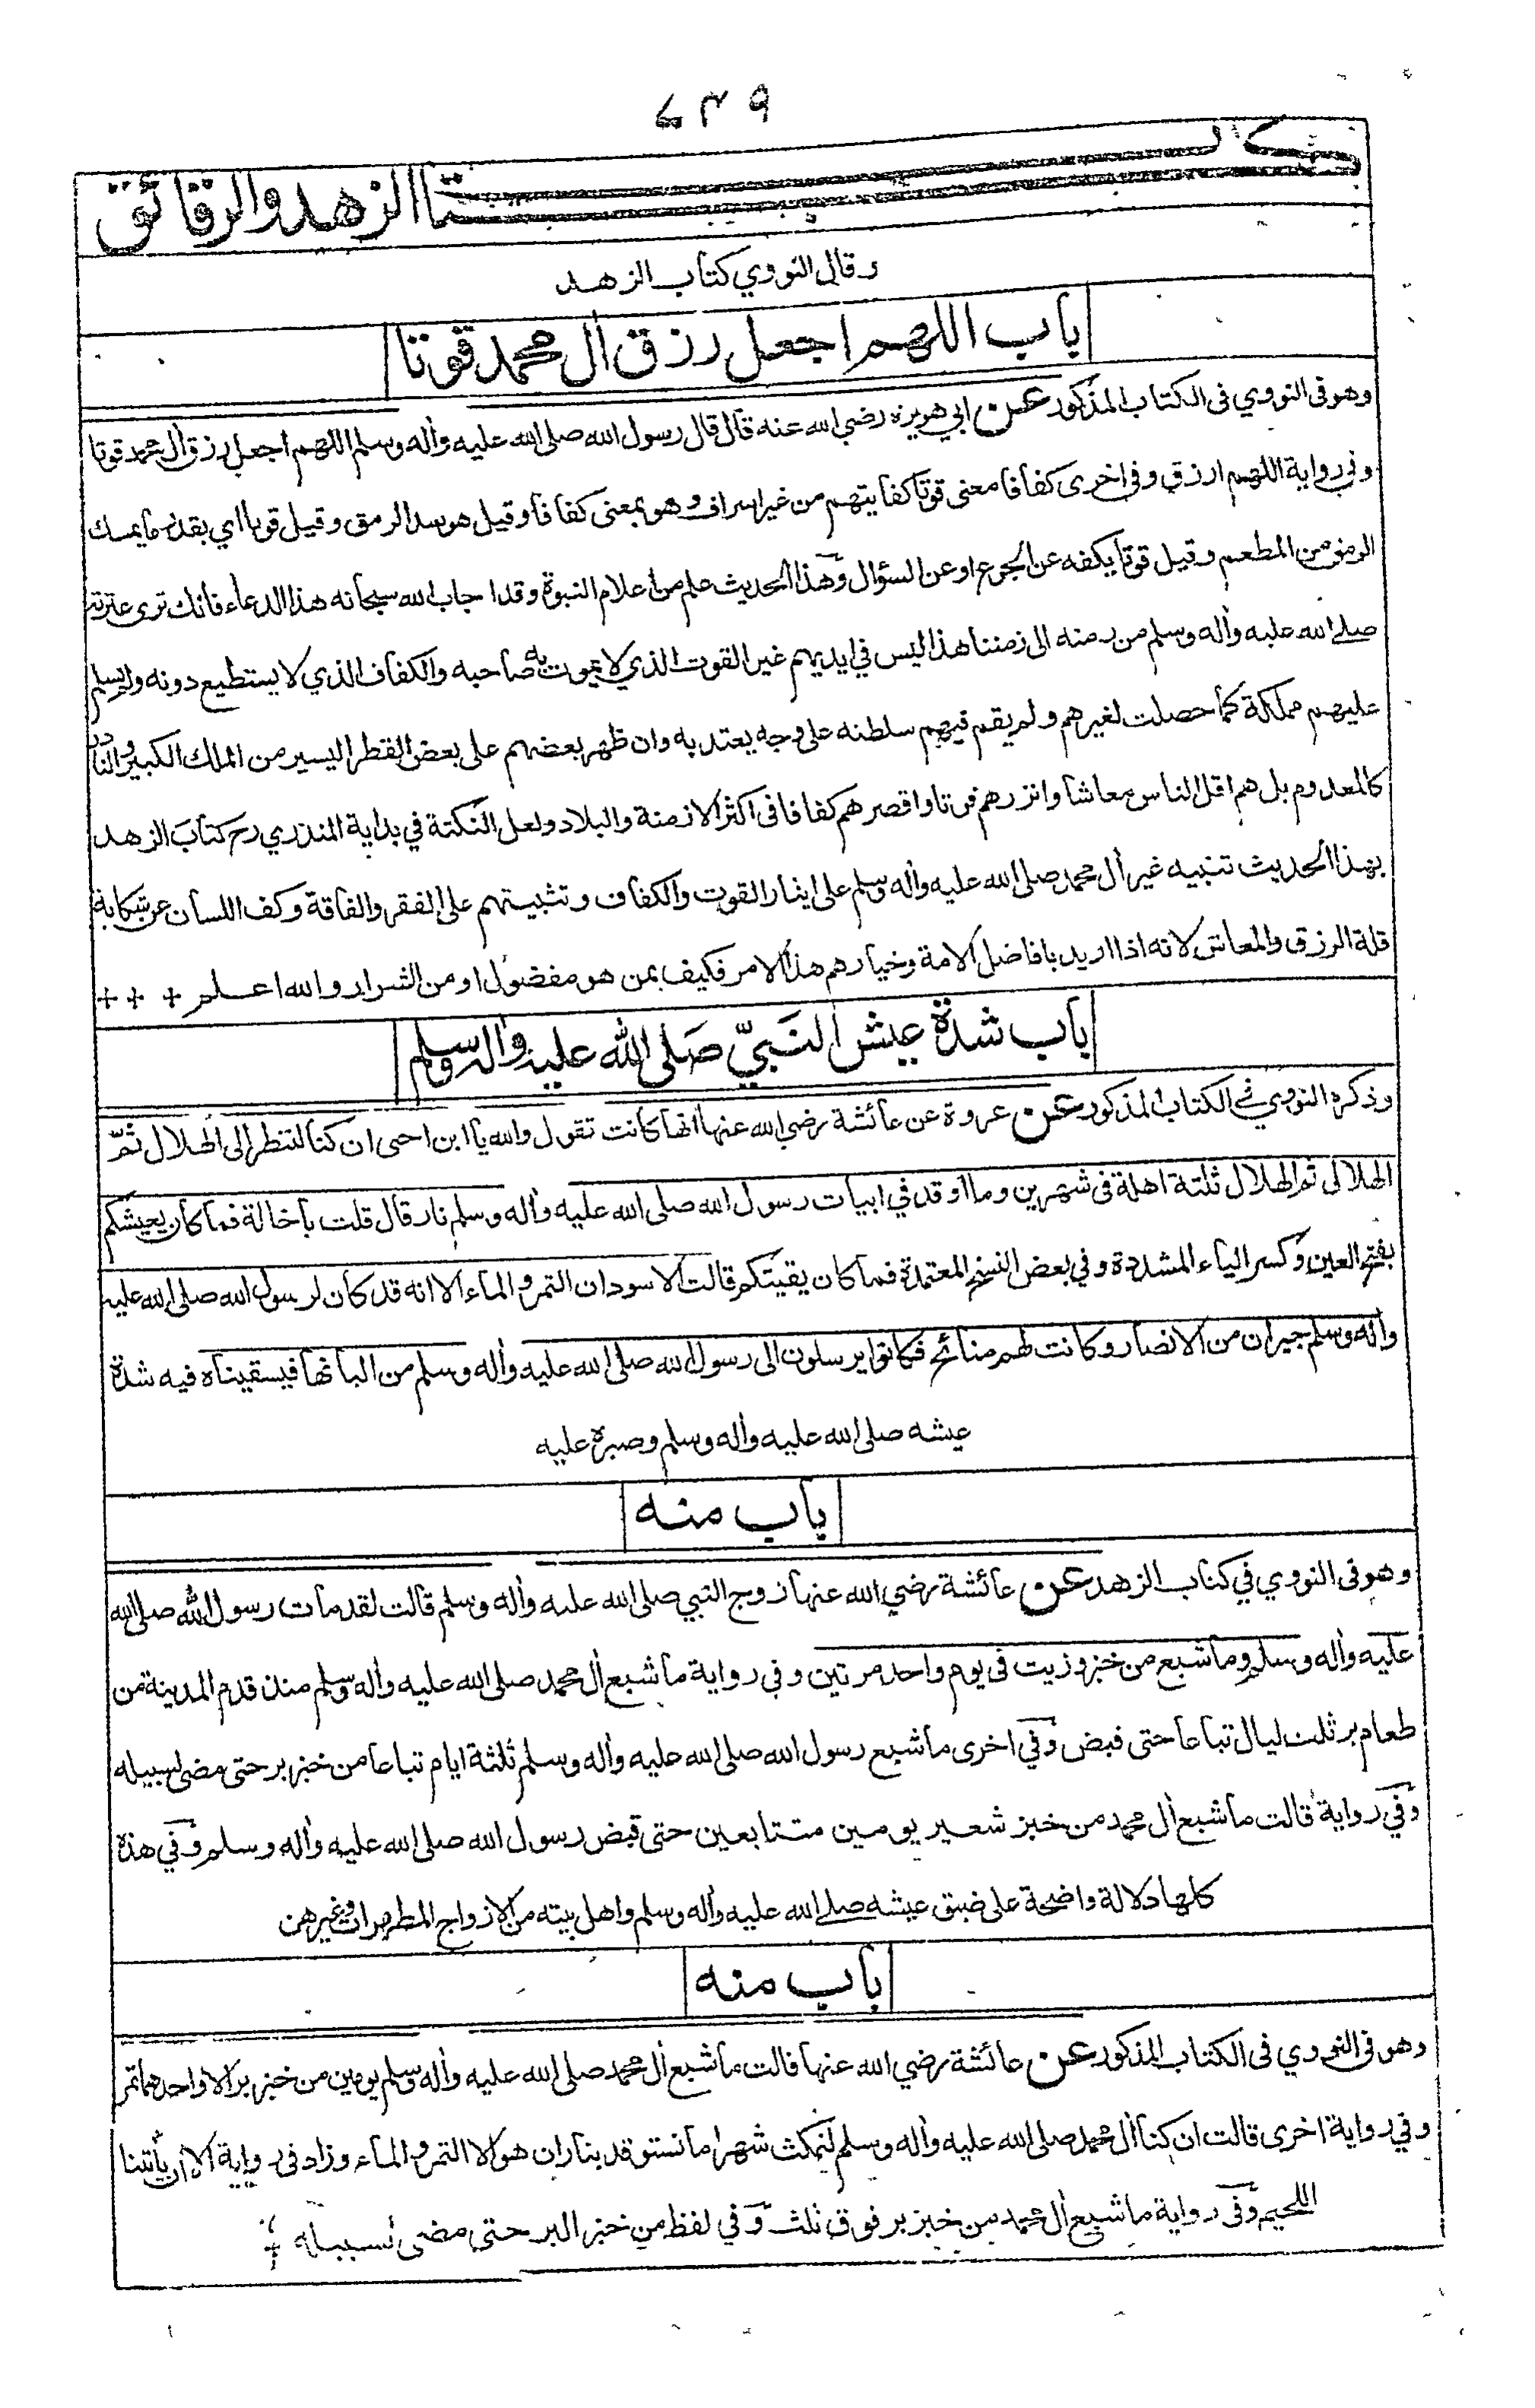 ٦٣٩
كتاب الزهد والرقائق
وقال النووي كتاب الزهد
باب اللهم اجعل رزق اٰل محمد قوتا
وهو فى النووي فى الكتاب المذكور عن ابي هريرة رضي الله عنه قال قال رسول الله صلى الله عليه واٰله وسلم اللهم اجعل رزق اٰل محمد قوتا
وفي رواية اللهم ارزق وفى اخرى كفافا معنى قوتا كفايتهم من غير اسراف وهو بمعنى كفافا وقيل هو سد الرمق وقيل قوتا اي بقدر ما يمسك
الرمق من المطعم وقيل قوتا يكفه عن الجوع او عن السؤال وهذا الحديث علم من اعلام النبوة وقد اجاب الله سبحانه هذا الدعاء فانك ترى عترته
صلى الله عليه واٰله وسلم من زمنه الى زمننا هذا ليس في ايديهم غير القوت الذي لا يموت به صاحبه والكفاف الذي لا يستطيع دونه ولم يسلم
عليهم مملكة كما حصلت لغيرهم ولم يقم فيهم سلطنه على وجه يعتد به وان ظهر بعضهم على بعض القطر اليسير من الملك الكبير والنادر
كالمعدوم بل هم اقل الناس معاشا وانزرهم قوتا واقصرهم كفافا فى اكثر الازمنة والبلاد ولعل النكتة في بداية المنذري رح كتاب الزهد
بهذا الحديث تنبيه غير اٰل محمد صلى الله عليه واٰله وسلم على ايثار القوت والكفاف وتثبيتهم على الفقر والفاقة وكف اللسان عن شكاية
قلة الرزق والمعاش لانه اذا اريد بافاضل الامة وخيارهم هذا الامر فكيف بمن هو مفضول او من الشرار والله اعلم + + +
باب شدة عيش النبيّ صلى الله عليه واٰله وسلم
وذكره النووي في الكتاب المذكور عن عروة عن عائشة رضي الله عنها انها كانت تقول والله يا ابن اختى ان كنا لننظر الى الهلال ثمّ
الهلال ثم الهلال ثلثة اهلة فى شهرين وما اوقد في ابيات رسول الله صلى الله عليه واٰله وسلم نار قال قلت يا خالة فما كان يعيشكم
بفتح العين وكسر الياء المشددة وفي بعض النسخ المعتمدة فما كان يقيتكم قالت الاسودان التمر والماء الا انه قد كان لرسول الله صلى الله عليه
واٰله وسلم جيران من الانصار وكانت لهم منائح فكانوا يرسلون الى رسول الله صلى الله عليه واٰله وسلم من البانها فيسقيناه فيه شدة
عيشه صلى الله عليه واٰله وسلم وصبره عليه
باب منه
وهو فى النووي في كتاب الزهد عن عائشة رضي الله عنها زوج النبي صلى الله عليه واٰله وسلم قالت لقد مات رسول الله صلى الله
عليه واٰله وسلم وما شبع من خبز وزيت فى يوم واحد مرتين وفي رواية ما شبع اٰل محمد صلى الله عليه واٰله وسلم منذ قدم المدينة من
طعام بر ثلث ليال تباعا حتى قبض وفي اخرى ما شبع رسول الله صلى الله عليه واٰله وسلم ثلثة ايام تباعا من خبز بر حتى مضى لسبيله
وفي رواية قالت ما شبع اٰل محمد من خبز شعير يومين متتابعين حتى قبض رسول الله صلى الله عليه واٰله وسلم وفي هذة
كلها دلالة واضحة على ضيق عيشه صلى الله عليه واٰله وسلم واهل بيته من الازواج المطهرات وغيرهن
باب منه
وهو فى النووي فى الكتاب المذكور عن عائشة رضي الله عنها قالت ما شبع اٰل محمد صلى الله عليه واٰله وسلم يومين من خبز بر الا واحدهما تمر
وفي رواية اخرى قالت ان كنا اٰل محمد صلى الله عليه واٰله وسلم لنمكث شهرا ما نستوقد بنار ان هو الا التمر والماء وزاد فى رواية الا ان يأتينا
اللحيم وفى رواية ما شبع اٰل محمد من خبز بر فوق ثلث وفي لفظ من خبز البر حتى مضى لسبيله